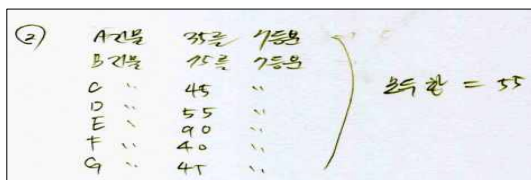 ② A건물 35를 7등분
B건물 75를 7등분
C 〃 45 〃
D 〃 55 〃
E 〃 90 〃
F 〃 40 〃
G 〃 45 〃
모두 합 = 55